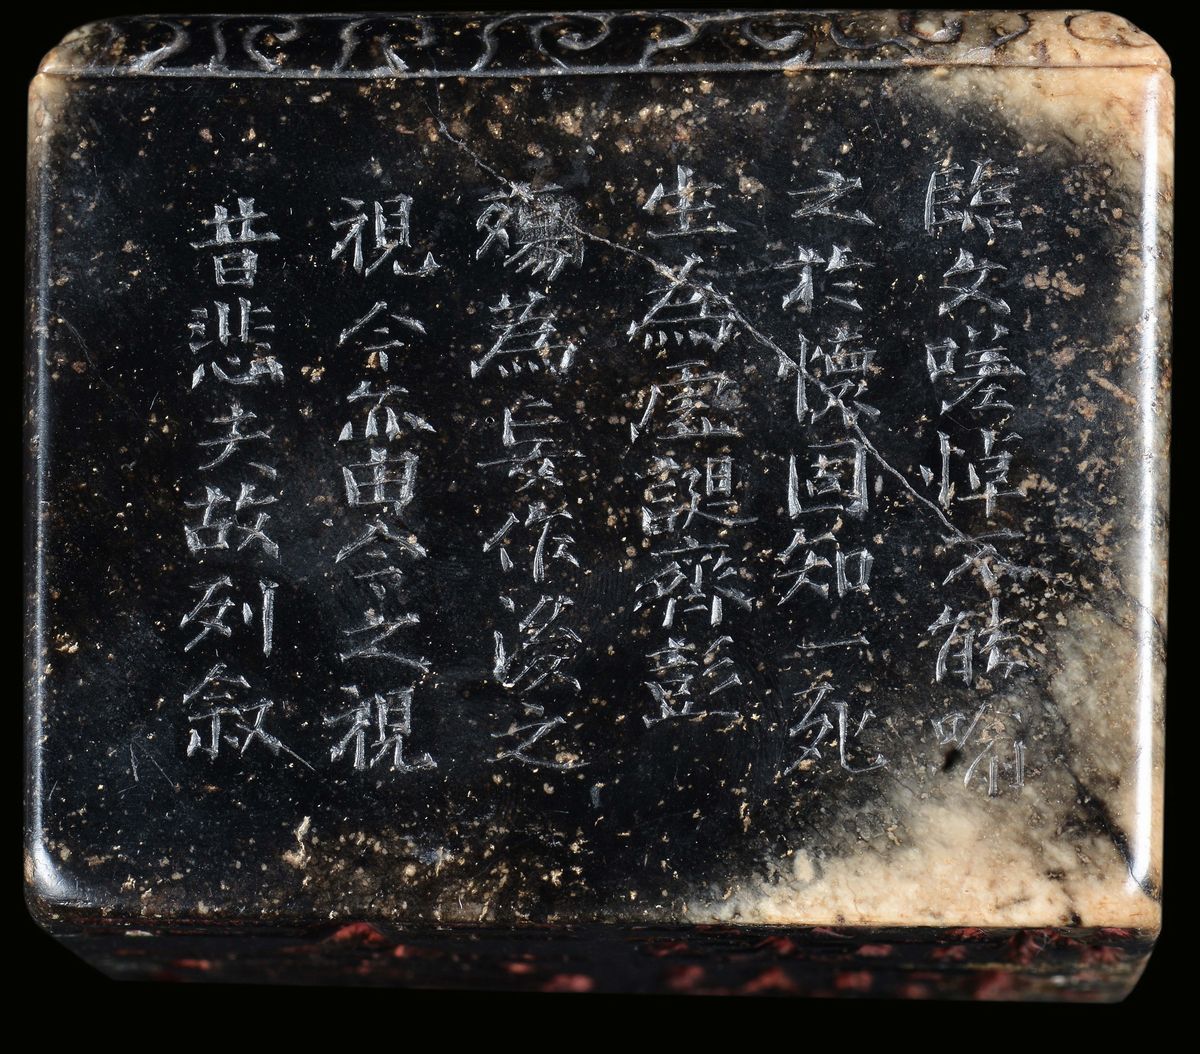 臨文嗟悼不能喻
之於懷固知一死
生為虛誕齊彭
殤為妄作後之
視今亦由今之視
昔悲夫故列叙